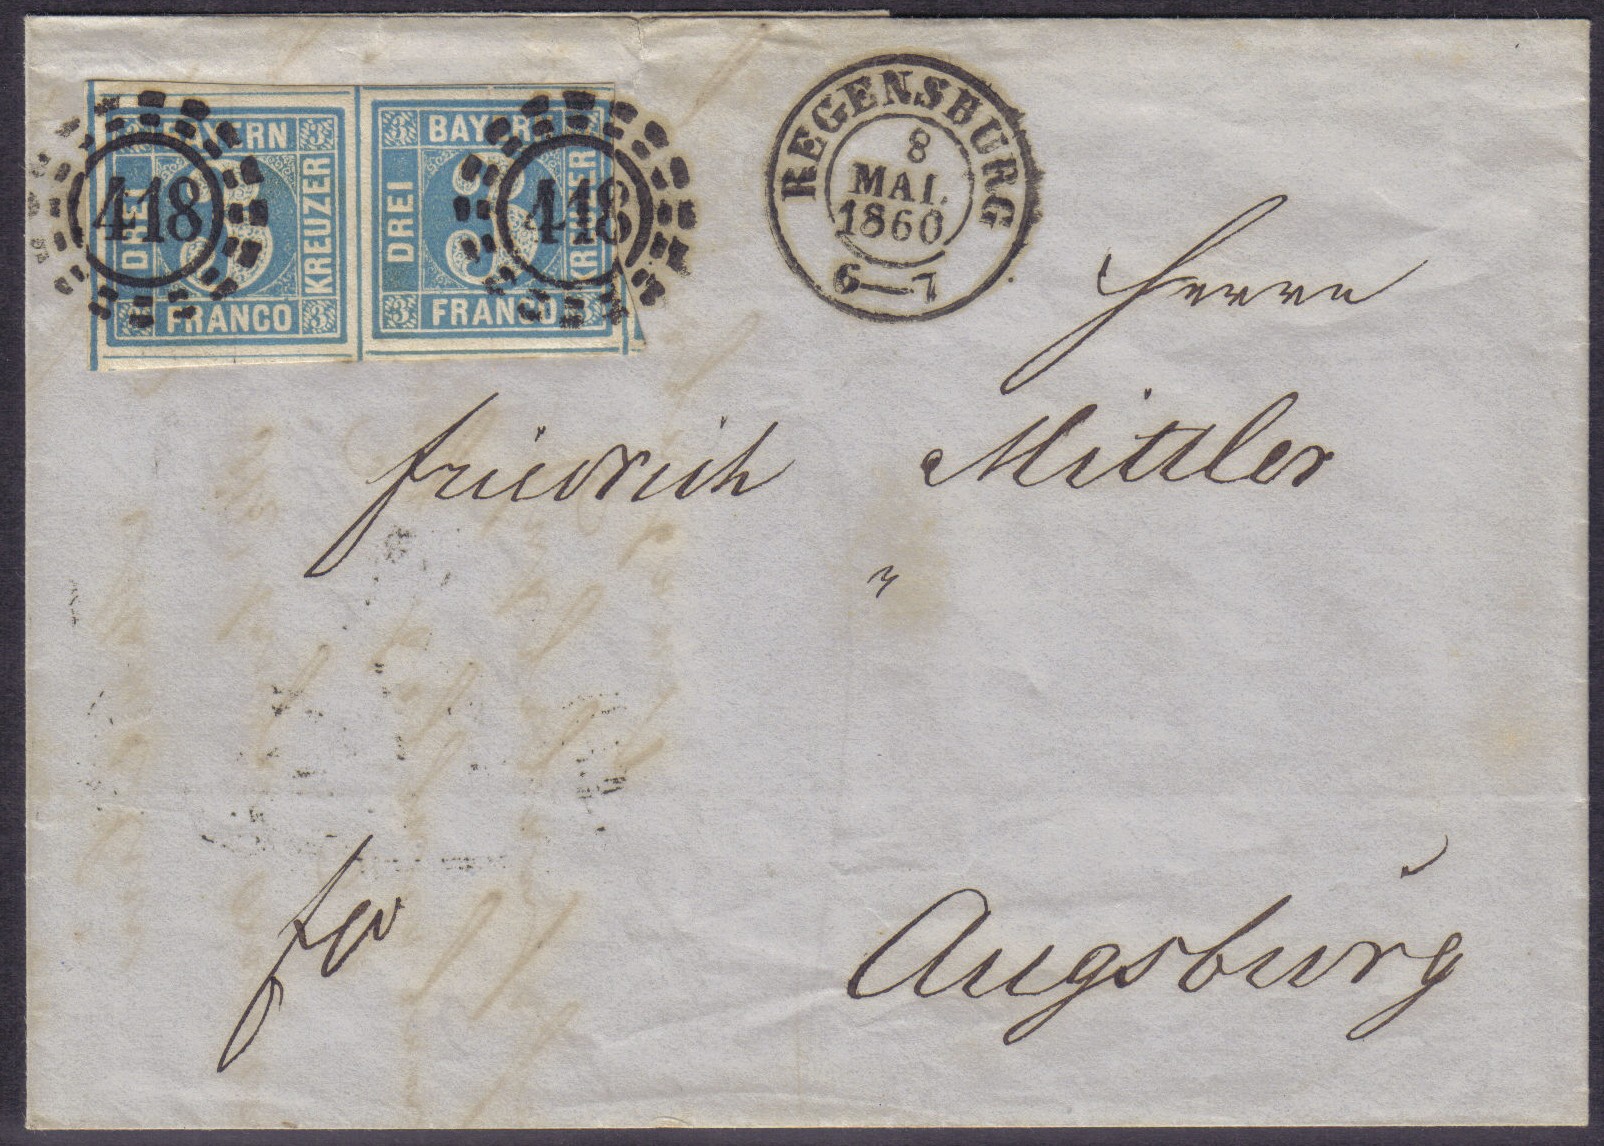 3 BAYERN 3
DREI
KREUZER
FRANCO 3
418
3 BAYERN
DREI
3
KREUZER
3 FRANCO 3
418
REGENSBURG
8
MAI.
1860
6—7
Herrn
Friedrich Mittler
fro
Augsburg